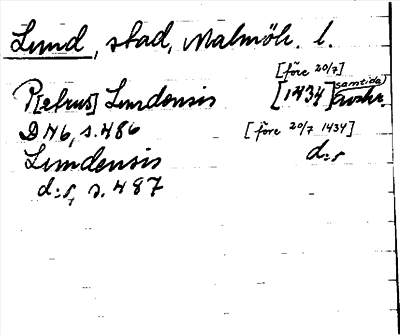 Lund, stad, Malmöh. l.
[före 20/7]
P[etrus] Lundensis [1434] samtida avskr.
D 46, s. 486 [före 20/7 1434]
Lundensis d:s
d:s, s. 487